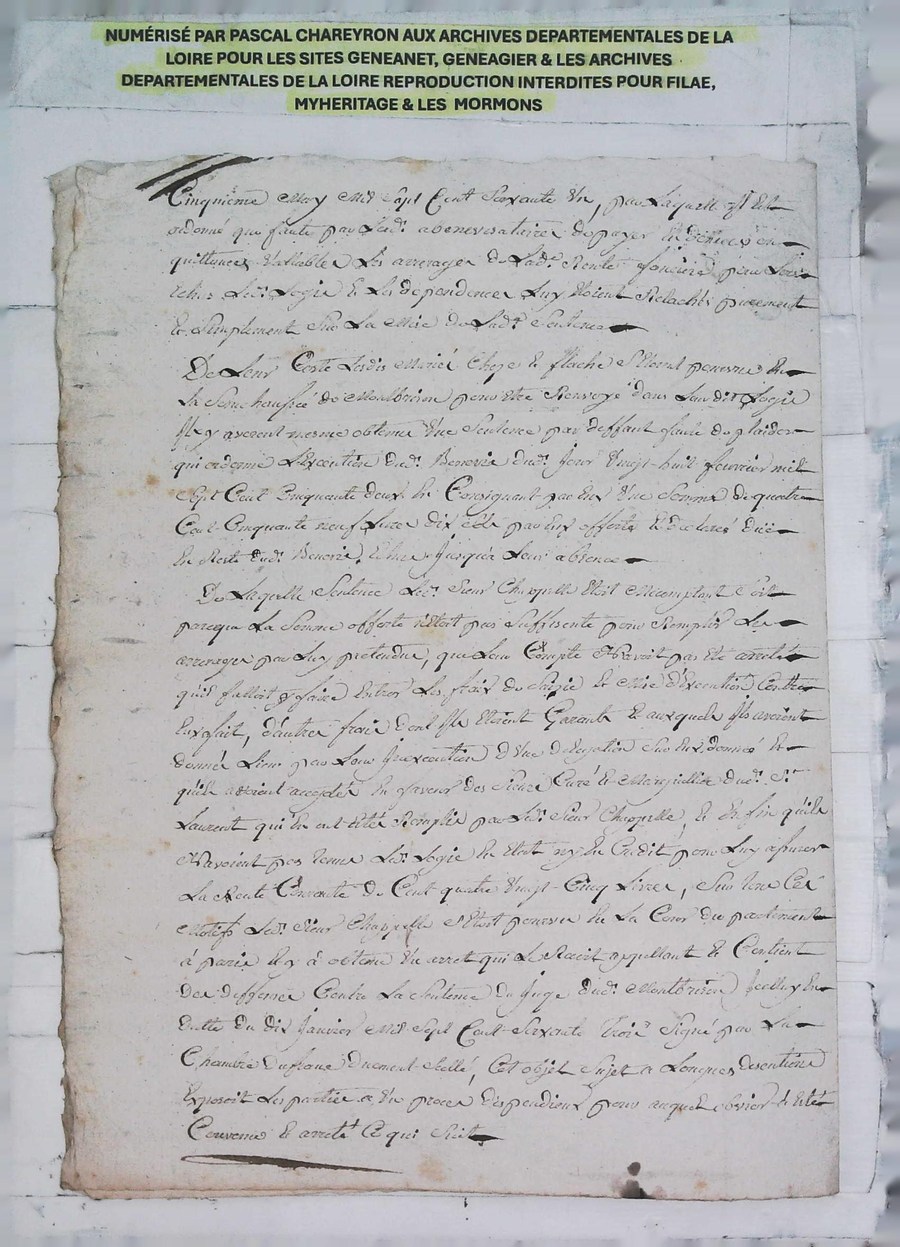 NUMÉRISÉ PAR PASCAL CHAREYRON AUX ARCHIVES DEPARTEMENTALES DE LA
LOIRE POUR LES SITES GENEANET, GENEAGIER & LES ARCHIVES
DEPARTEMENTALES DE LA LOIRE REPRODUCTION INTERDITES POUR FILAE,
MYHERITAGE & LES MORMONS
Cinquième May Mil Sept Cent Soixante Un, par Laquelle il Est
ordonné que faute par Lesd. abenevisataires de payer en
quittances Vallables Les arrerages de Lad. Rente fonciere pour
Led. Logis & Les dependences Luy Soient Relachés purement
Et Simplement Sur La Mise de Lad. Sentence
De Leur Costé Lesdis Mariés Cheze et flache S'Etoient pourvus En
La Senechaussée de Montbrison pour Etre Renvoyé dans Leur dit Logis
Ils y avoient mesme obtenu Une Sentence par deffaut faute de plaider
qui ordonne L'Execution dud. Benevis dud. Jour Vingt-huit feuvrier mil
Sept Cent Cinquante deux En Consignant par Eux Une Somme de quatre
Cent Cinquante neuf Livre dix par Eux offerte et declaré düe
En Reste dud. Benevis, Jusqua Leur absence
De Laquelle Sentence Led. Sieur Chappelle Etoit Mecomptant Soit
parceque La Somme offerte n'Etoit pas Suffisente pour Remplir Les
arrerages par Luy pretendue, que Leur Compte N'avoit pas Eté arreté
quil falloit y faire Entrer Les frais de Saisie et Mise d'Execution Contre
Eux fait, d'autres frais dont ils Etoient Garants et auxquels ils avoient
donné Lieu par Leur Inexecution d'Une delegation Sur Eux donnée et
quils avoient acceptée En faveur des Sieurs Curé et Marguilliers dud. St
Laurent qui En ont Eté Remplis par Led. Sieur Chappelle, et En fin quils
N'avoient pas tenus Led. Logis En Etat ny En Credit pour Luy assurer
La Rente Courante de Cent quatre Vingt-Cinq Livres, Sur tous Ces
Motifs Led. Sieur Chappelle S'Etoit pourvu En La Cour du parlement
à paris Et y à obtenu Un arret qui Le Recoit appellant et Contient
des deffences Contre La Sentence du Juge dud. Montbrison Icelluy En
datte du dix Janvier Mil Sept Cent Soixante Trois Signé par La
Chambre Dufranc Duement Scellé, Cet objet Sujet a Longues discutions
Exposoit Les parties a Un proces dispendieux pour auquel obvier Il Eté
Convenu Et arreté Ce qui Suit